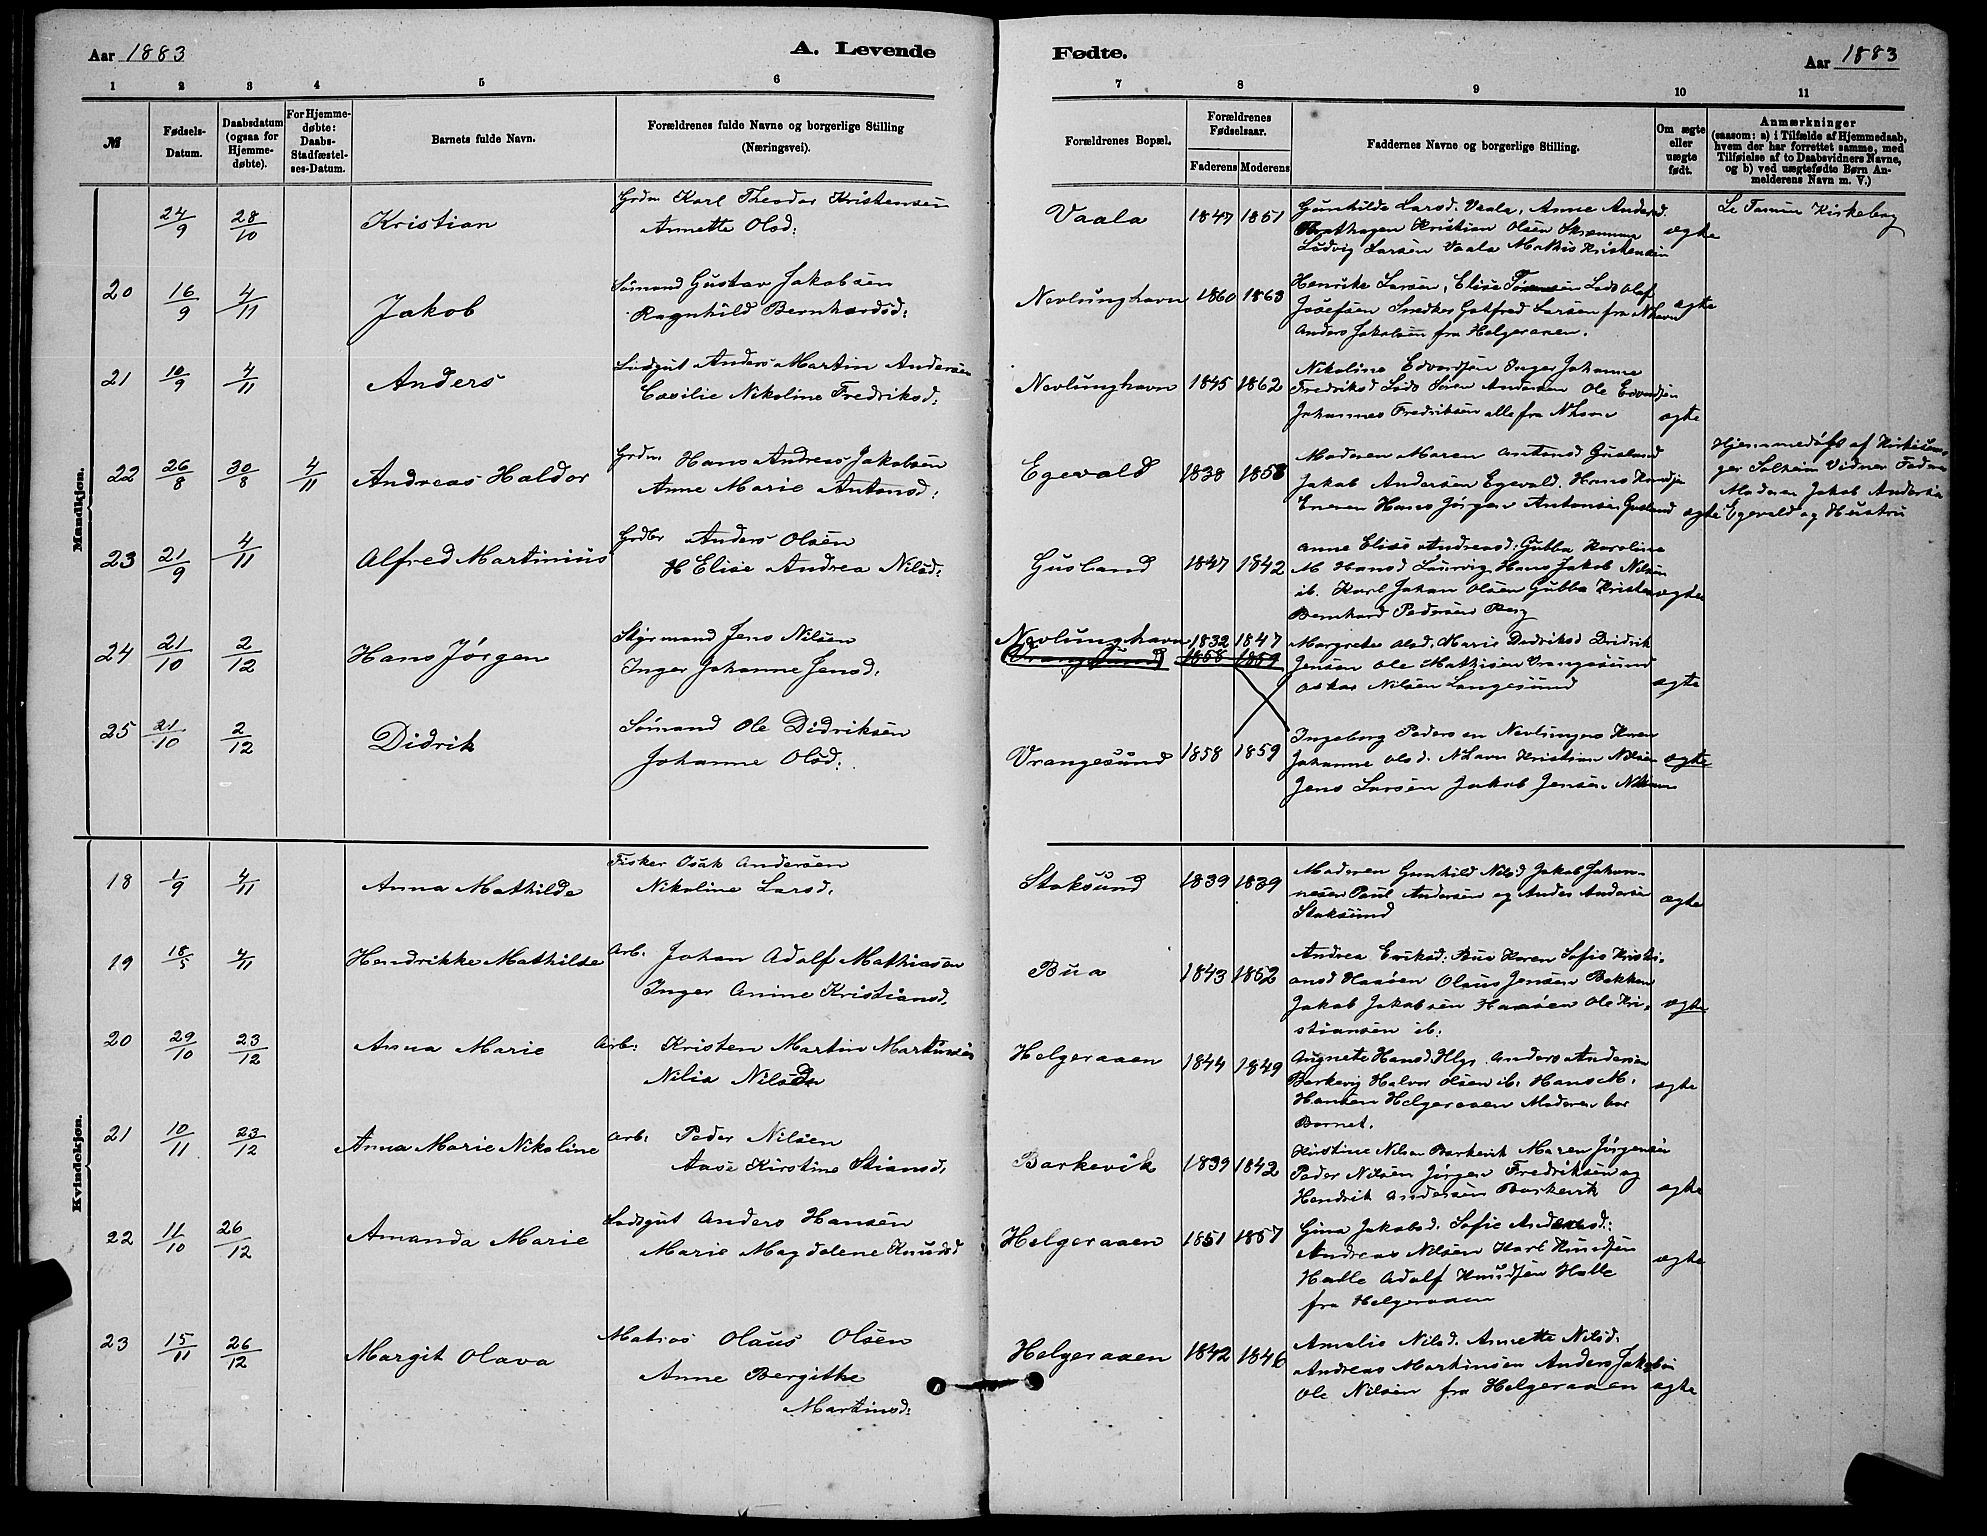 Aar 1883 A. Levende
1 2 3 4 5 6
№ Fødsels-Datum. Daabsdatum (ogsaa for Hjemmedøbte). For Hjemmedøbte: Daabs-Stadfæstelses-Datum. Barnets fulde Navn. Forældrenes fulde Navne og borgerlige Stilling (Næringsvei).
Mandkjøn.
24/9 28/10 Kristian Grdm Karl Theodor Kristensen
Annette Olsd:
20 16/9 4/11 Jakob Sømand Gustav Jakobsen
Ragnhild Bernhardsd:
21 10/9 4/11 Anders Lodsgut Anders Martin Andersen
Cæsilie Nikoline Fredriksd:
22 26/8 30/8 4/11 Andreas Haldor Grdm Hans Andreas Jakobsen
Anne Marie Antonsd:
23 21/9 4/11 Alfred Martinius Grdbr Anders Olsen
H Elise Andrea Nilsd:
24 21/10 2/12 Hans Jørgen Styrmand Jens Nilsen
Inger Johanne Jensd.
25 21/10 2/12 Didrik Sømand Ole Didriksen
Johanne Olsd:
Kvindekjøn.
18 1/9 4/11 Anna Mathilde Fisker Osak Andersen
Nikoline Larsd.
19 18/5 4/11 Hendrikke Mathilde Arb: Johan Adolf Mathiasen
Inger Anine Kristiansd.
20 29/10 23/12 Anna Marie Arb: Kristen Martin Martinsen
Nilia Nilsd
21 10/11 23/12 Anna Marie Nikoline Arb: Peder Nilsen
Aase Kirstine Stiansd.
22 11/10 26/12 Amanda Marie Lodsgut Anders Hansen
Marie Magdalene Knudsd
23 15/11 26/12 Margit Olava Matros Olaus Olsen
Anne Bergithe
Martinsd:
Fødte. Aar 1883
7 8 9 10 11
Forældrenes Bopæl. Forældrenes Fødselsaar. Faderens Moderens Faddernes Navne og borgerlige Stilling. Om ægte eller uægte født. Anmærkninger (saasom: a) i Tilfælde af Hjemmedaab, hvem der har forrettet samme, med Tilføielse af to Daabsvidners Navne, og b) ved uægtefødte Børn Anmelderens Navn m. V.)
Vaala 1847 1851 Gunhilde Larsd. Vaala, Anne Andersd. Se Tanum Kirkebog
Kristian Olsen ægte
Ludvig Larsen Vaala Mathis Kristensen
Nevlunghavn 1860 1863 Henrike Larsen, Elise Lods Olaf
Josefsen Snedker Gotfred Larsen fra NHavn ægte
Anders Jakobsen fra Helgeraaen.
Nevlunghavn 1845 1862 Nikoline Edvardsen Inger Johanne
Fredriksd Lods Søren Andersen Ole Edvardsen
Johannes Fredriksen alle fra NHavn ægte
Egevald 1838 1858 Moderen Maren Antonsd Gusland
Jakob Andersen Egevald. Hans Knudsen
Hans Jørgen Antonsen Gusland ægte
Hjemmedøbt af Kirkesanger Solheim Vidner Faderen
Moderen Jakob Andersen
Egevald og Hustru
Gusland 1847 1842 Anne Elise Andreasd: Gubba Karoline
M Hansd Laurvig, Hans Jakob Nilsen
ib. Karl Johan Olsen Gubba Kristen ægte
Bernhard Pedersen Berg
Nevlunghavn 1832 1847 Margrete Olsd. Marie Dedriksd Didrik
Vrangesund 1858 1859 Jensen Ole Mathisen Vrangesund
Oskar Nilsen Langesund ægte
Vrangesund 1858 1859 Ingeborg Pedersen Nevlungen Karen
Johanne Olsd. NHavn Kristian Nilsen ægte
Jens Larsen Jakob Jensen NHavn
Stoksund 1839 1839 Moderen Gunhild Nilsd Jakob Johannesen Paul Andersen og Andes Andersen ægte
Stoksund
Bua 1843 1852 Andrea Eriksd: Bua Karen Sofie Kristiansd Haaøen Olaus Jensen Bakken
Jakob Jakobsen Haaøen Ole Kristiansen ib. ægte
Helgeraaen 1844 1849 Augnete Hansd. Hlgr. Anders Andersen
Barkevig Halvor Olsen ib: Hans M. ægte
Hansen Helgeraaen Moderen bar
Barnet.
Barkevik 1839 1842 Kirstine Nilsen Barkevik Maren Jørgensen
Peder Nilsen Jørgen Fredriksen og
Hendrik Andersen Barkevik ægte
Helgeraaen 1851 1857 Gina Jakobsd. Sofie Andersd:
Andreas Nilsen Karl Knudsen ægte
Halle Adolf Knudsen Halle
fra Helgeraaen
Helgeraaen 1842 1846 Amalie Nilsd. Annette Nilsd.
Andreas Martinsen Anders Jakobsen
Ole Nilsen fra Helgeraaen ægte